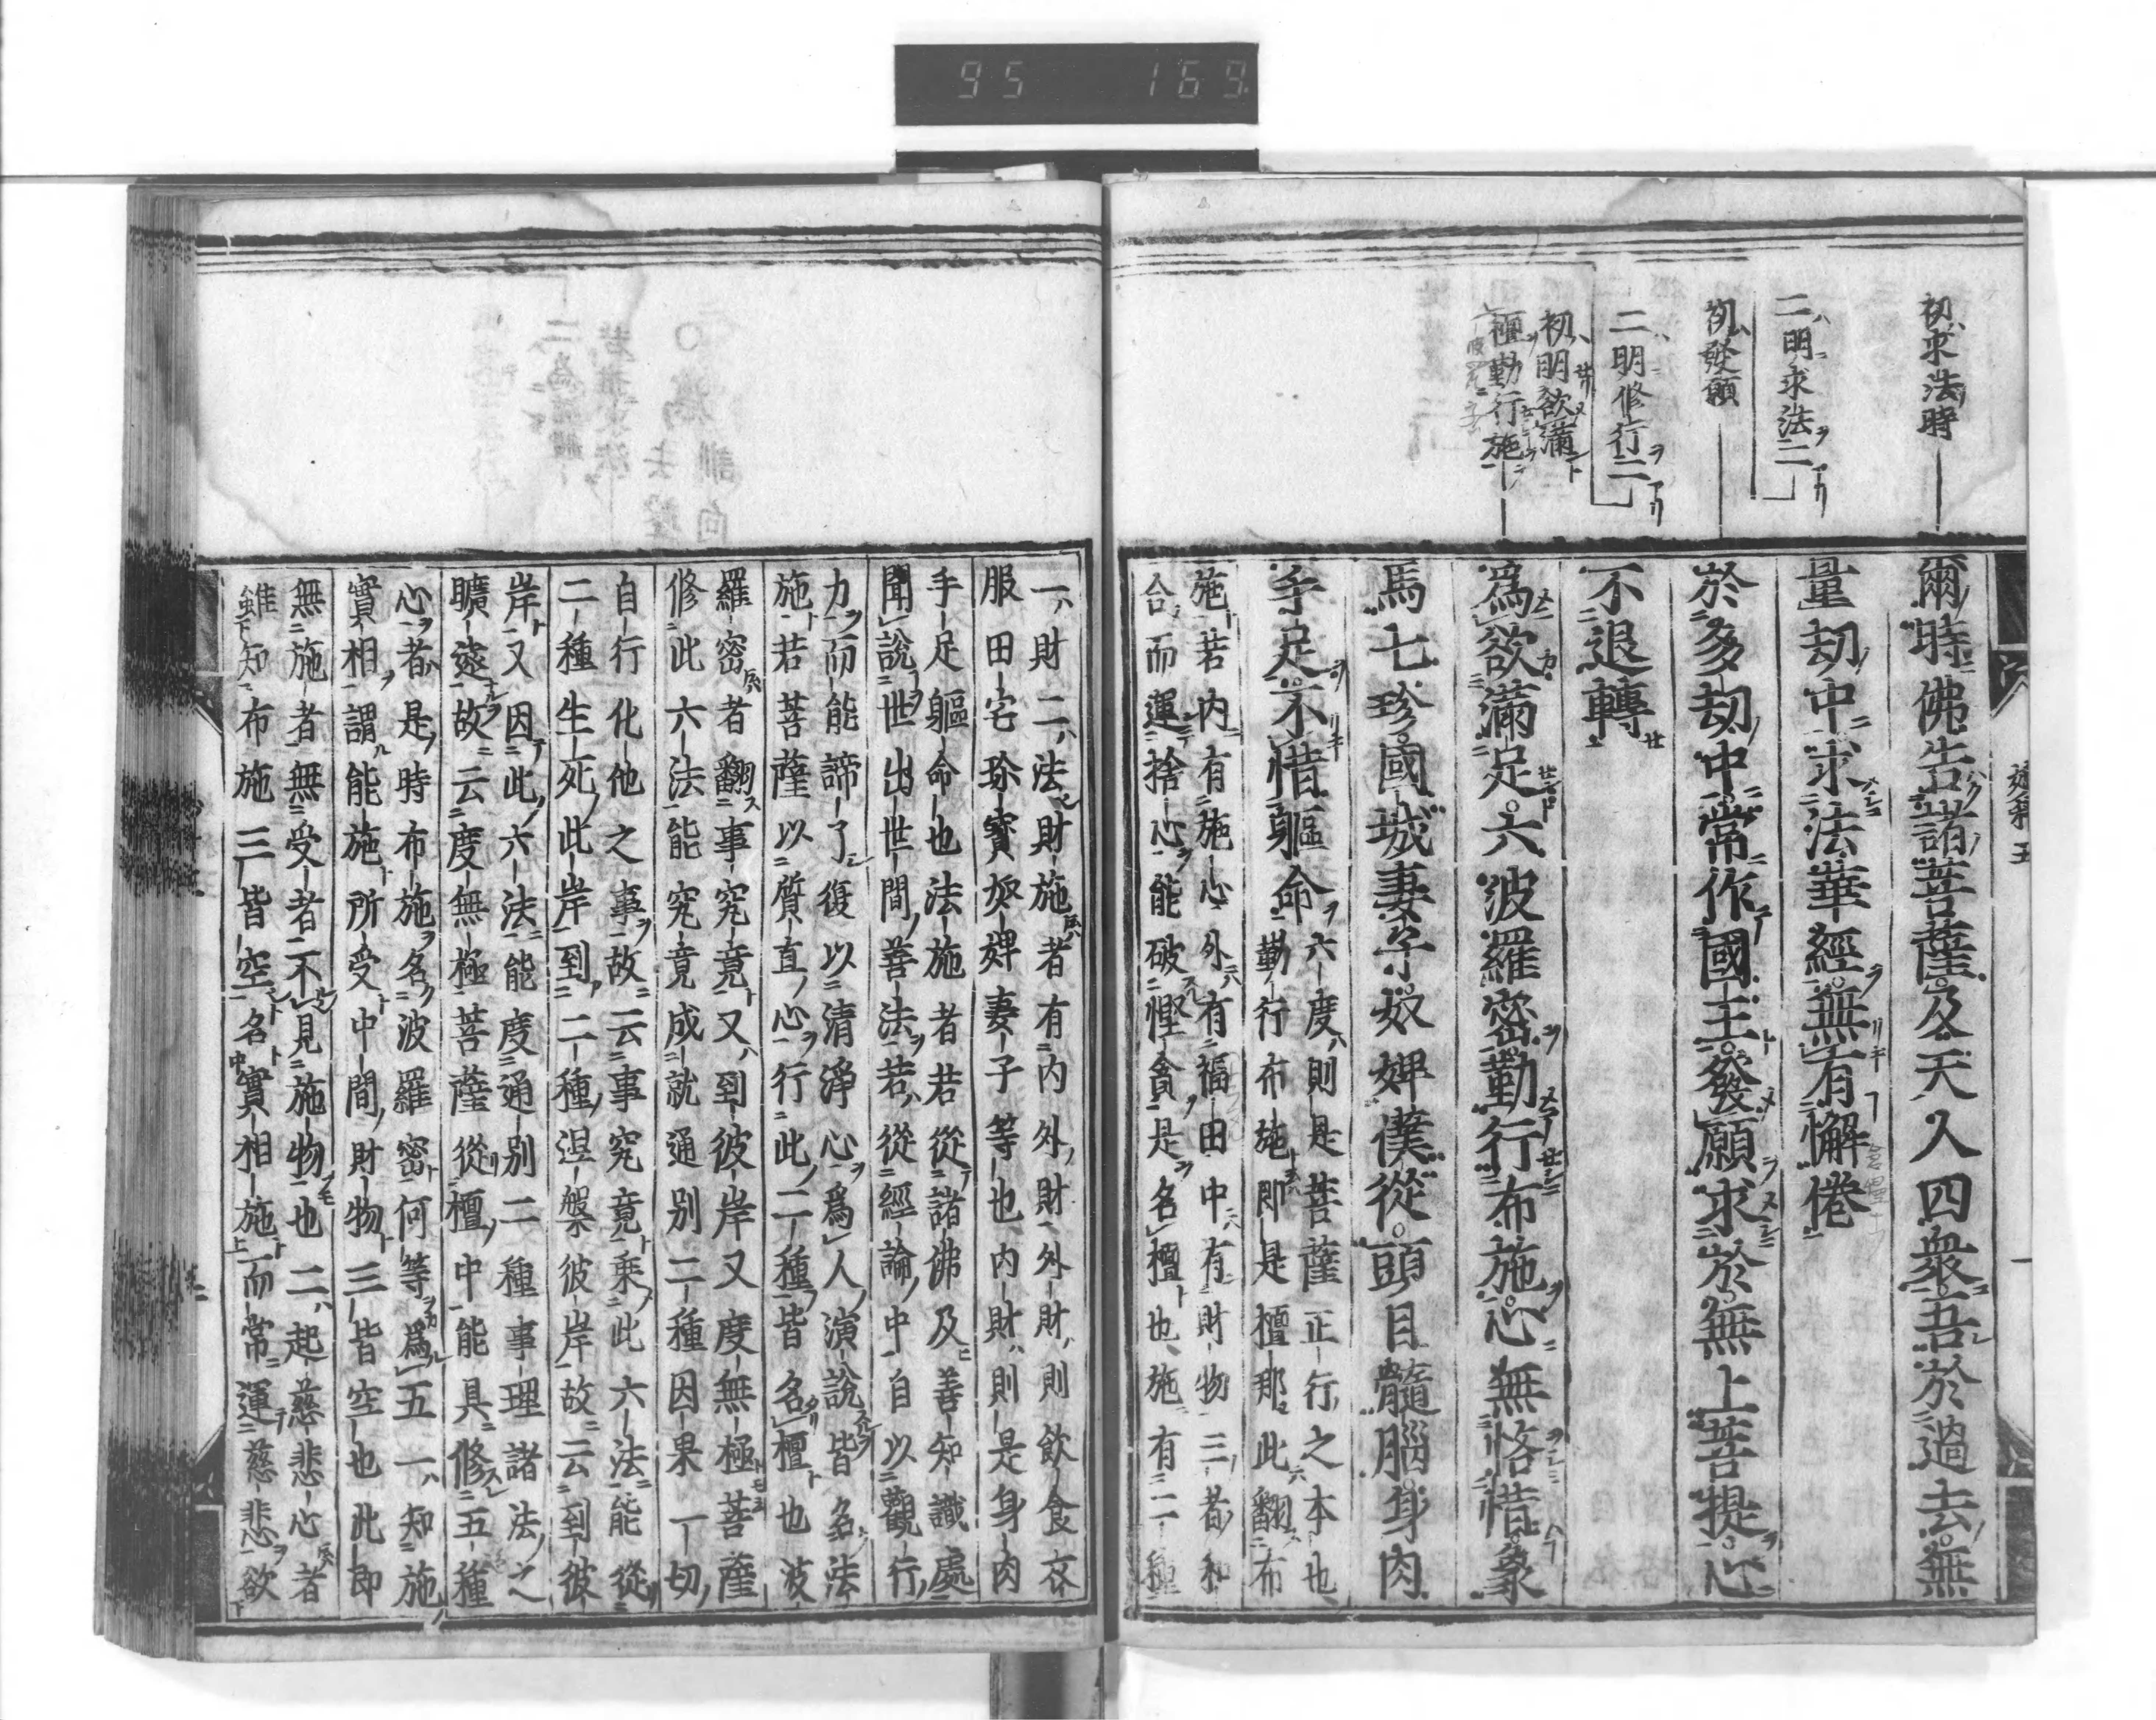 95 169
初求法時
二明求法二
初發願
二明修行二
初明欲滿
檀勤行施
爾時佛告諸菩薩及天人四衆吾於過去無
量劫中求法華經無有懈倦
於多劫中常作國王發願求於無上菩提心
不退轉
爲欲滿足六波羅密勤行布施心無悋惜象
馬七珍國城妻子奴婢僕從頭目髓腦身肉
手足不惜軀命
六度則是菩薩正行之本也
勤行布施即是檀那此翻布
施若内有施心外有福田中有財物三者和
合而運捨心能破慳貪是名檀也施有二種
一財二法財施者有内外財外財則飲食衣
服田宅珍寶奴婢妻子等也内財則是身肉
手足軀命也法施者若從諸佛及善知識處
聞說世出世間善法若從經論中自以觀行
力而能諦了復以清淨心爲人演說皆名法
施若菩薩以質直心行此二種皆名檀也波
羅密者翻事究竟又到彼岸又度無極菩薩
修此六法能究竟成就通别二種因果一切
自行化他之事故云事究竟乘此六法能從
二種生死此岸到二種涅槃彼岸故云到彼
岸又因此六法能度通别二種事理諸法之
曠遠故云度無極菩薩從檀中能具修五種
心者是時布施名波羅密何等爲五一知施
實相謂能施所受中間財物三皆空也此即
無施者無受者不見施物也二起慈悲心者
雖知布施三皆空名實相施而常運慈悲欲